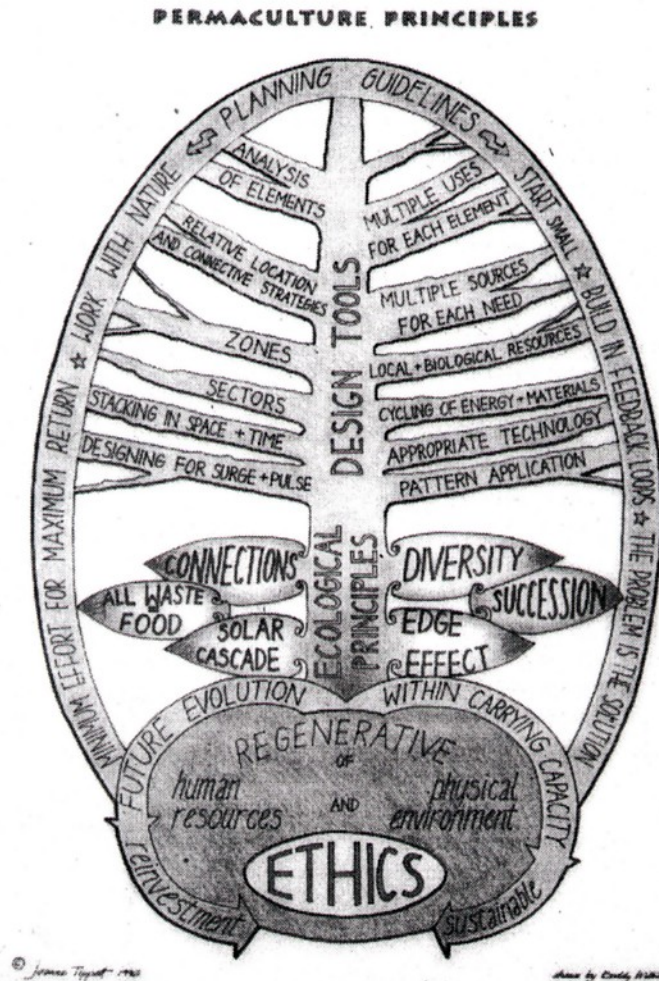 PERMACULTURE PRINCIPLES
MINIMUM EFFORT FOR MAXIMUM RETURN ☆ WORK WITH NATURE PLANNING GUIDELINES START SMALL ☆ BUILD IN FEEDBACK LOOPS ☆ THE PROBLEM IS THE SOLUTION
DESIGN TOOLS
ANALYSIS
OF ELEMENTS
RELATIVE LOCATION
AND CONNECTIVE STRATEGIES
ZONES
SECTORS
STACKING IN SPACE + TIME
DESIGNING FOR SURGE + PULSE
MULTIPLE USES
FOR EACH ELEMENT
MULTIPLE SOURCES
FOR EACH NEED
LOCAL + BIOLOGICAL RESOURCES
CYCLING OF ENERGY + MATERIALS
APPROPRIATE TECHNOLOGY
PATTERN APPLICATION
ECOLOGICAL
PRINCIPLES
CONNECTIONS
ALL WASTE
IS
FOOD
SOLAR
CASCADE
DIVERSITY
SUCCESSION
EDGE
EFFECT
reinvestment FUTURE EVOLUTION
WITHIN CARRYING CAPACITY sustainable
REGENERATIVE
OF
human
resources
AND
physical
environment
ETHICS
© Joanne Tippett
drawn by Buddy